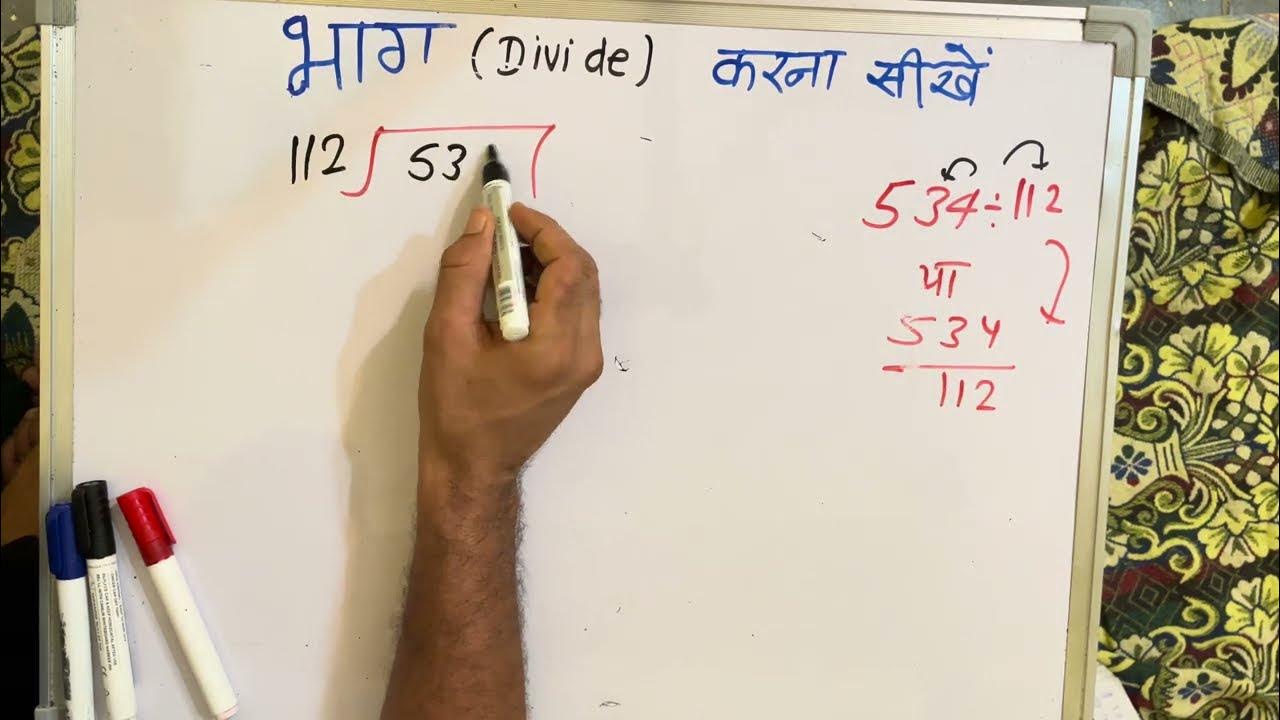 भाग (Divide) करना सीखें
112 53
534÷112
या
534
112